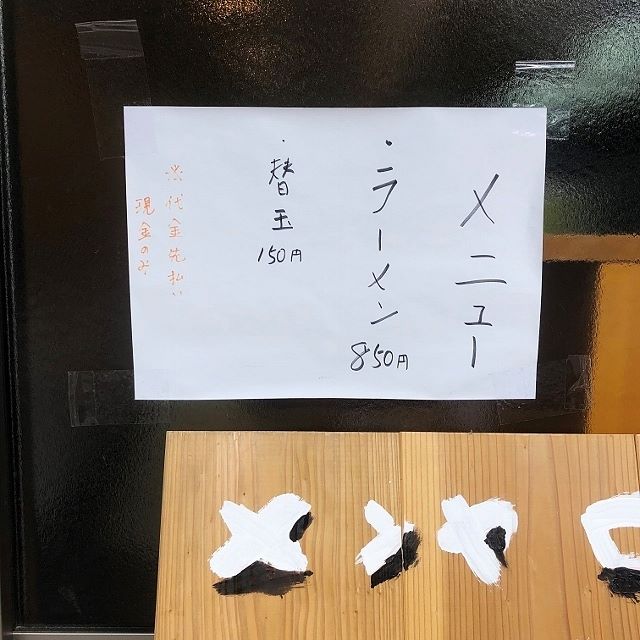 メニュー
・ラーメン 850円
・替玉 150円
※代金先払い
現金のみ
メンヤ